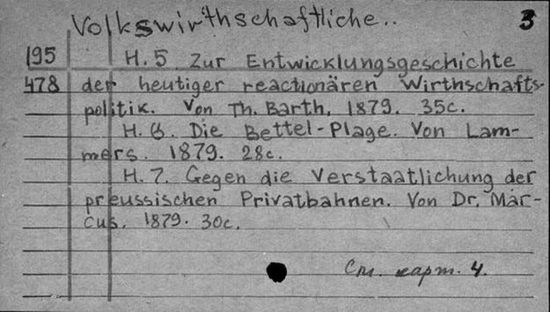 Volkswirthschaftliche.. 3
195 H. 5. Zur Entwicklungsgeschichte
478 der heutiger reactionären Wirthschafts-
politik. Von Th. Barth, 1879. 35c.
H. 6. Die Bettel-Plage. Von Lam-
mers. 1879. 28c.
H. 7. Gegen die Verstaatlichung der
preussischen Privatbahnen. Von Dr. Mar-
cus. 1879. 30c.
См. карт. 4.